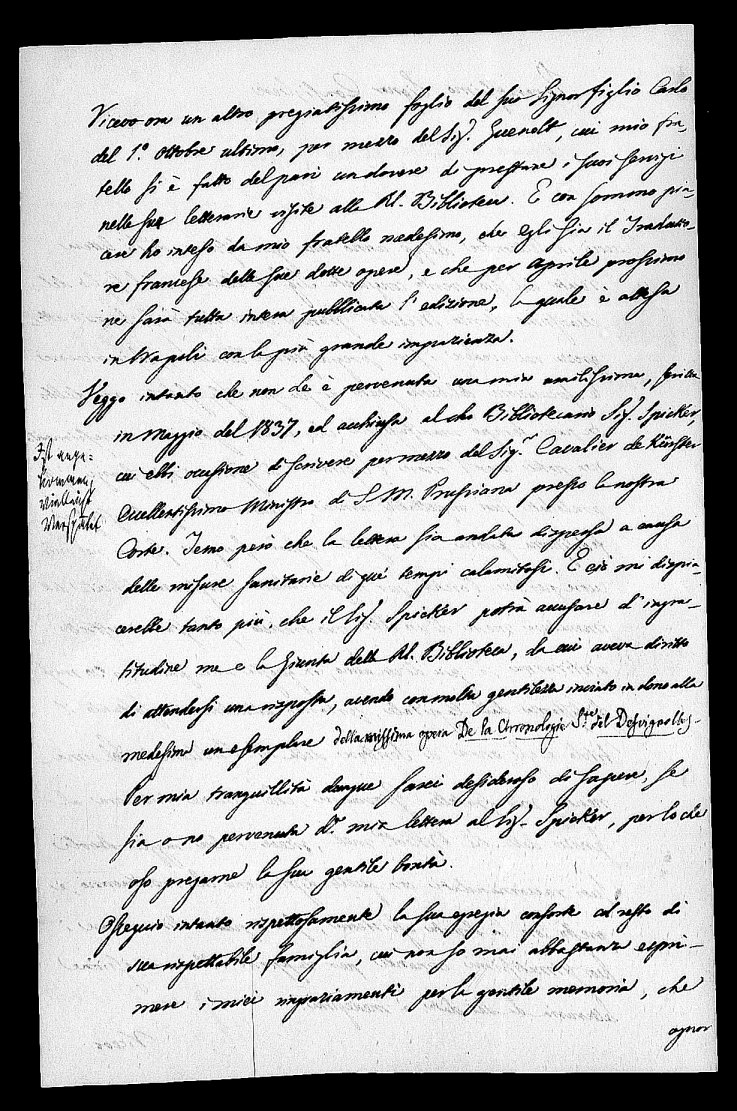 Ricevo ora un altro pregiatissimo foglio del suo Signor figlio Carlo
del 1.º Ottobre ultimo, per mezzo del Sig. Guenelt, cui mio fra-
tello si è fatto del pari un dovere di prestare i suoi servizi
nelle sue letterarie visite alla Rl. Biblioteca. E con sommo pia-
cere ho inteso da mio fratello medesimo, che egli sia il Tradutto-
re francese delle sue dotte opere, e che per Aprile prossimo
ne sarà tutta intera pubblicata l'edizione, la quale è attesa
in Napoli con la più grande impazienza.
Veggo intanto che non Le è pervenuta una mia umilissima, scritta
in Maggio del 1837, ed acchiusa al cho Bibliotecario Sig. Spicker,
cui ebbi occasione di scrivere per mezzo del Sig.r Cavalier de Küster
Eccellentissimo Ministro di S. M. Prussiana presso la nostra
Corte. Temo però che la lettera sia andata dispersa a causa
delle misure sanitarie di que' tempi calamitosi. E ciò mi dispia-
cerebbe tanto più, che il Sig. Spicker potrà accusare d'ingra-
titudine me e la Giunta della Rl. Biblioteca, da cui aveva diritto
di attendersi una risposta, avendo con molta gentilezza inviato in dono alla
medesima un esemplare della opera De la Chronologie Ste del Desvignolles.
Per mia tranquillità dunque sarei desideroso di sapere, se
sia o no pervenuta da. mia lettera al Sig. Spicker, per lo che
oso pregarne la sua gentile bontà.
Ossequio intanto rispettosamente la sua egregia consorte ed resto di
sua rispettabile famiglia, cui non so mai abbastanza espri-
mere i miei ringraziamenti per la gentile memoria, che
ognor
Ist ange-
kommen,
vielleicht
verspätet